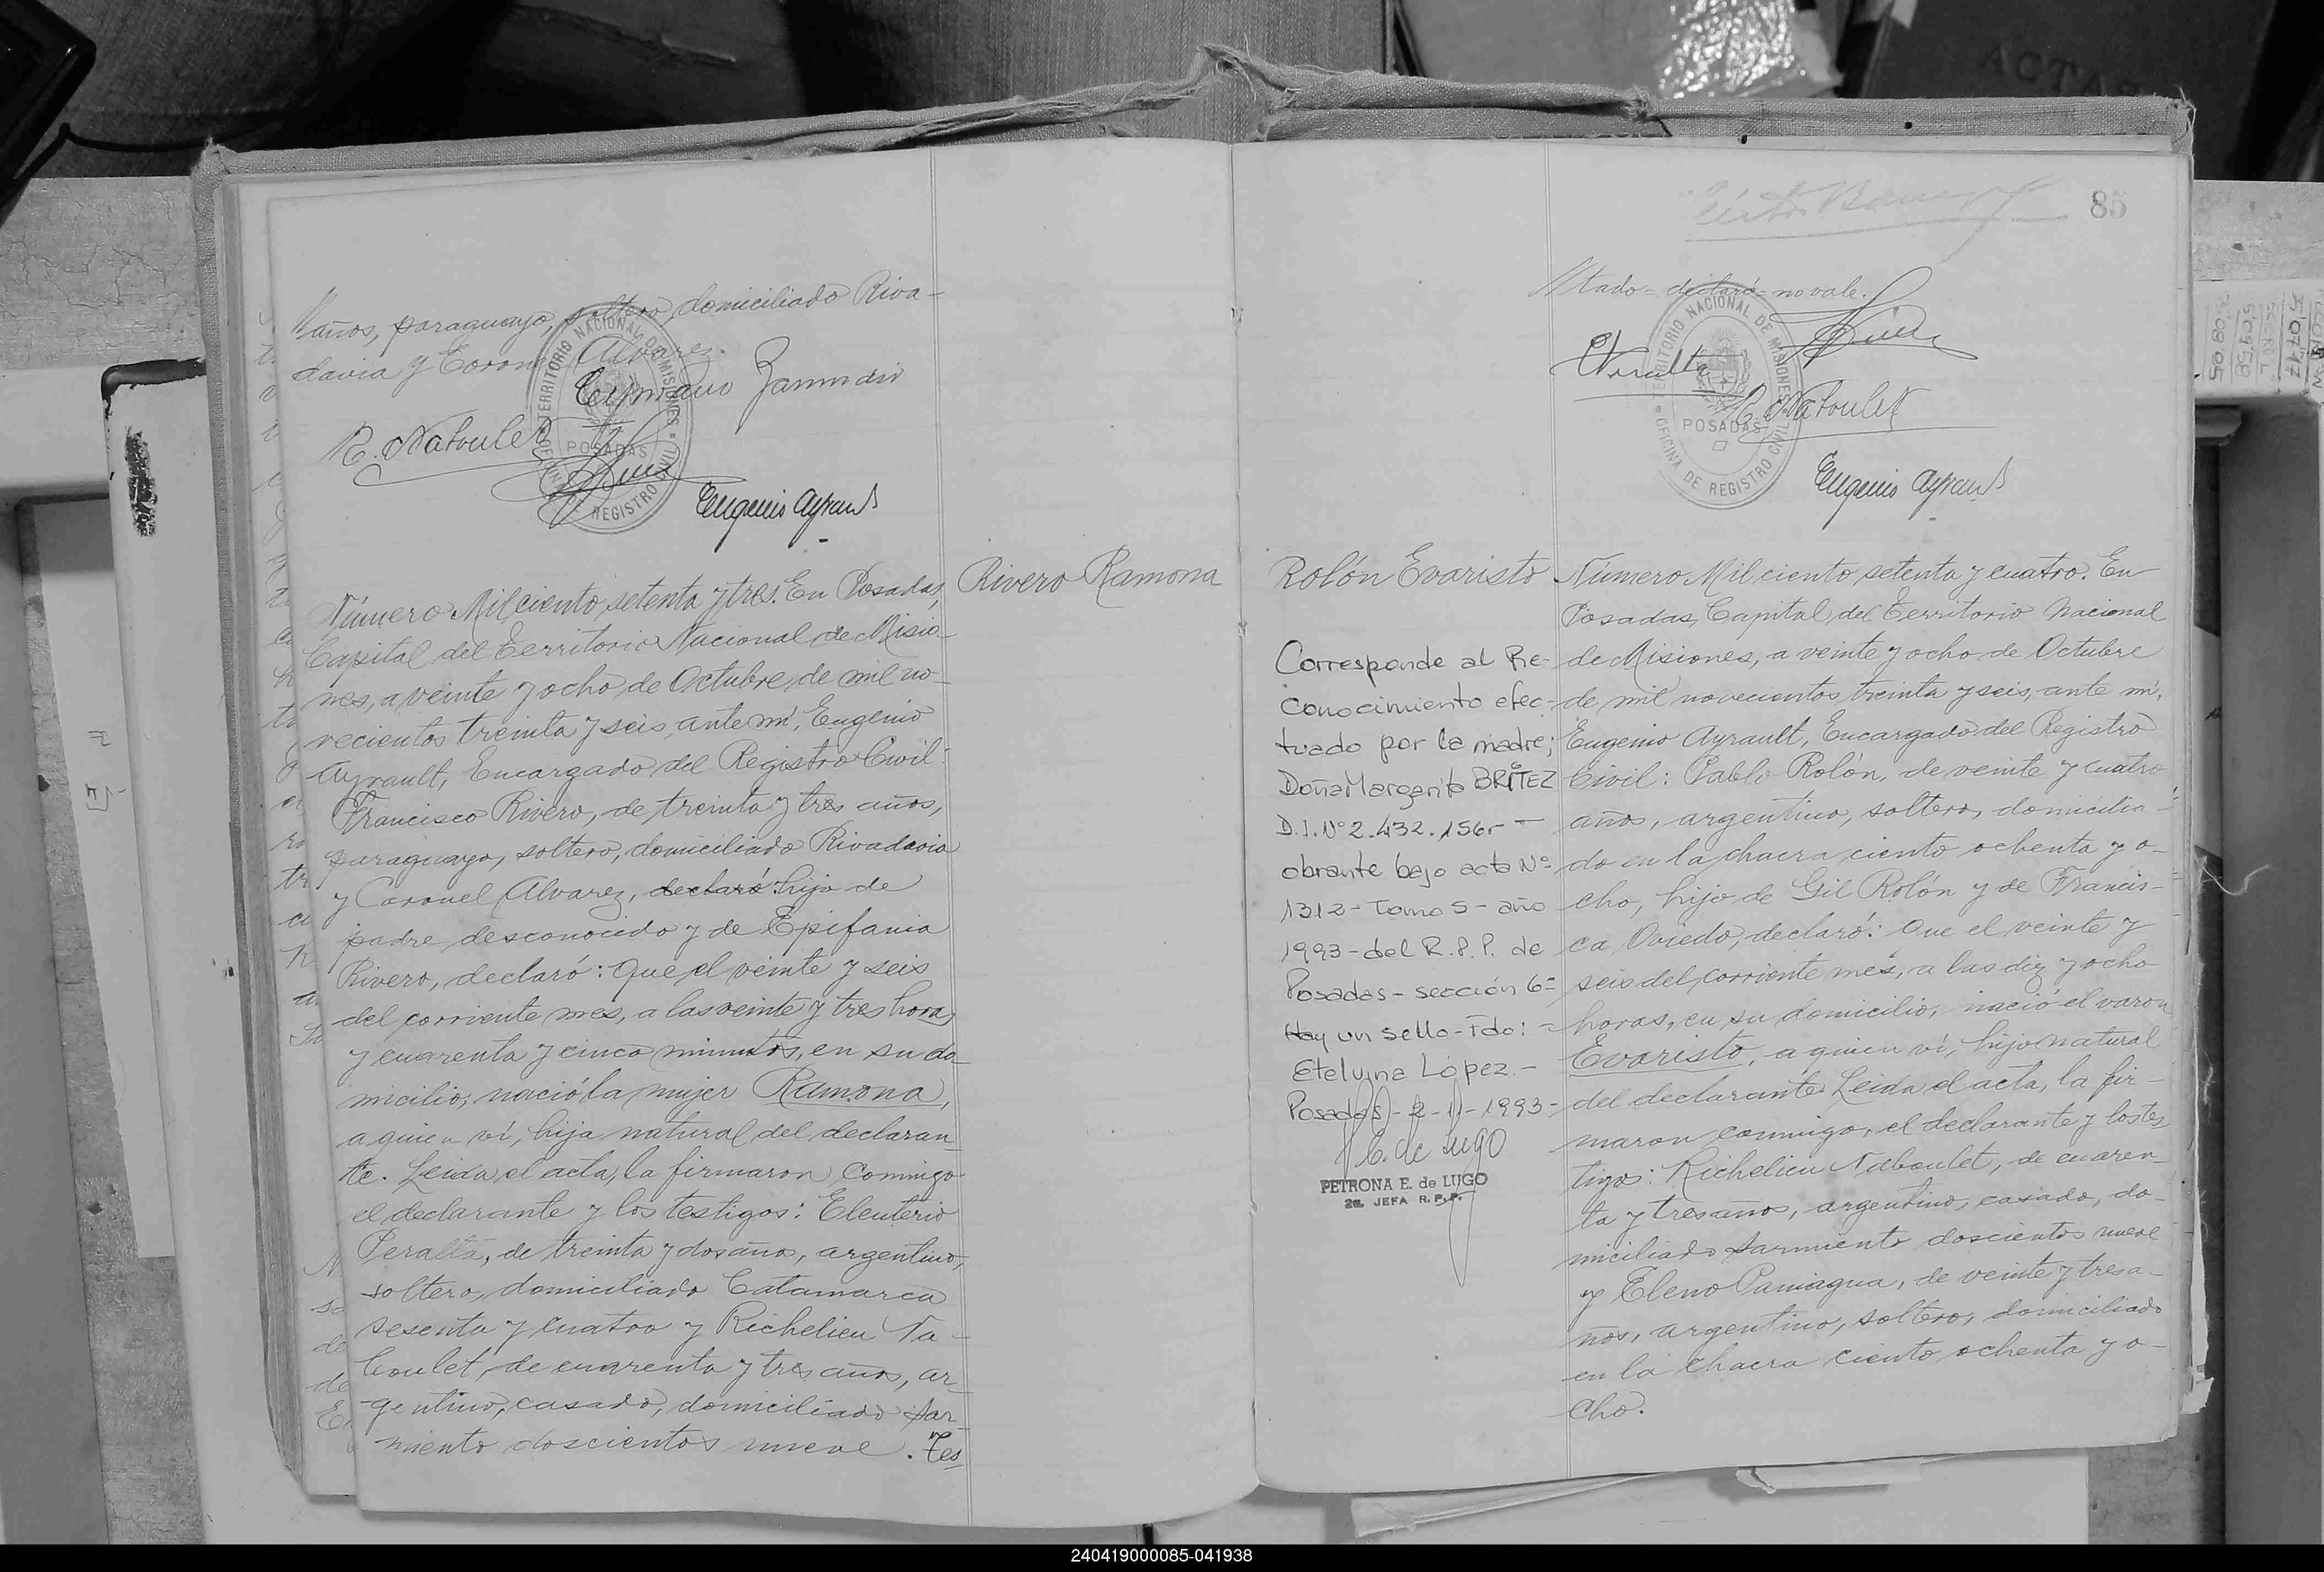 años, paraguayo, soltero, domiciliado Riva-
davia y Coronel Alvarez.
TERRITORIO NACIONAL DE MISIONES
POSADAS
OFICINA DE REGISTRO CIVIL
R. Naboulet
Eugenio Ayrault
Número Mil ciento setenta y tres. En Posadas,
Capital del Territorio Nacional de Misio-
nes, a veinte y ocho de Octubre, de mil no-
vecientos treinta y seis, ante mí, Eugenio
Ayrault, Encargado del Registro Civil:
Francisco Rivero, de treinta y tres años,
paraguayo, soltero, domiciliado Rivadavia
y Coronel Alvarez, declaró: hijo de
padre desconocido y de Epifania
Rivero, declaró: Que el veinte y seis
del corriente mes, a las veinte y tres horas
y cuarenta y cinco minutos, en su do-
micilio, nació la mujer Ramona,
a quien ví, hija natural del declaran-
te. Leida el acta, la firmaron conmigo
el declarante y los testigos: Eleuterio
Peralta, de treinta y dos año, argentino,
soltero, domiciliado Catamarca
sesenta y cuatro y Richelieu Na-
boulet, de cuarenta y tres años, ar-
gentino, casado, domiciliado Sar-
miento doscientos nueve. Tes
Rivero Ramona
85
tado = declaró = no vale.
TERRITORIO NACIONAL DE MISIONES
POSADAS
OFICINA DE REGISTRO CIVIL
EPeralta
R. Naboulet
Eugenio Ayrault
Rolón Evaristo
Corresponde al Re-
conocimiento efec-
tuado por la madre;
Doña Margarita BRITEZ
D.I. Nº 2.432.156.-
obrante bajo acta Nº
1312 - Tomo 5 - año
1993 - del R.P.P. de
Posadas - sección 6ª
Hay un sello - Fdo: -
Etelvina López. -
Posadas - 2 - 11 - 1993 -
E. de Lugo
PETRONA E. de LUGO
2a. JEFA R.P.P.
Número Mil ciento setenta y cuatro. En
Posadas, Capital del Territorio Nacional
de Misiones, a veinte y ocho de Octubre
de mil novecientos treinta y seis, ante mí,
Eugenio Ayrault, Encargado del Registro
Civil: Pablo Rolón, de veinte y cuatro
años, argentino, soltero, domicilia-
do en la chacra ciento ochenta y o-
cho, hijo de Gil Rolón y de Francis-
ca Oviedo, declaró: Que el veinte y
seis del corriente mes, a las diez y ocho
horas, en su domicilio, nació el varon
Evaristo, a quien ví, hijo natural
del declarante. Leida el acta, la fir-
maron conmigo, el declarante y los tes
tigos: Richelieu Naboulet, de cuaren-
ta y tres años, argentino, casado, do-
miciliado Sarmiento doscientos nueve
y Eleno Paniagua, de veinte y tres a-
ños, argentino, soltero, domiciliado
en la chacra ciento ochenta y o-
cho.
240419000085-041938